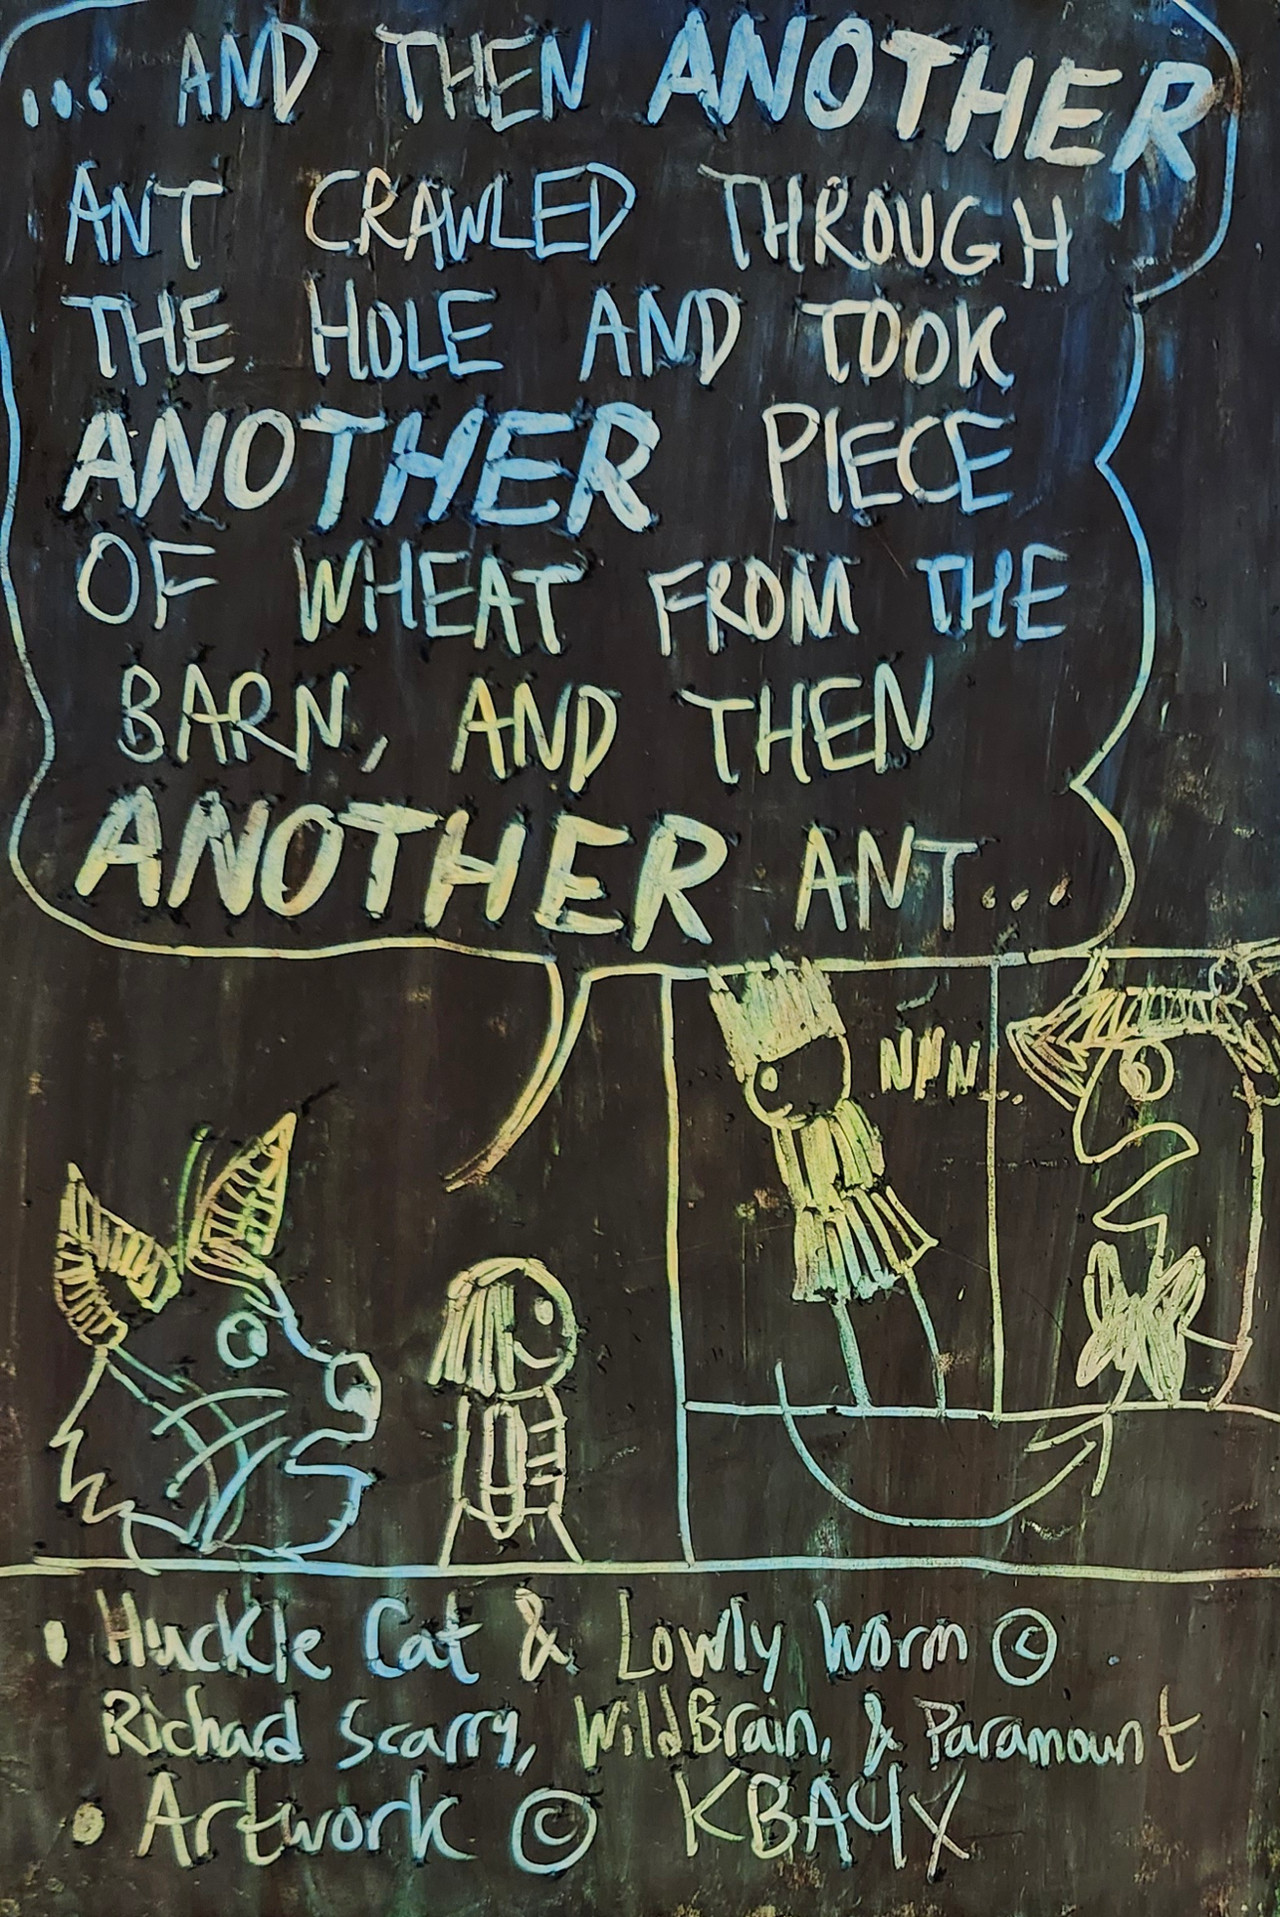 ... AND THEN ANOTHER
ANT CRAWLED THROUGH
THE HOLE AND TOOK
ANOTHER PIECE
OF WHEAT FROM THE
BARN, AND THEN
ANOTHER ANT...
Huckle Cat & Lowly Worm ©
Richard Scarry, WildBrain, & Paramount
Artwork ©